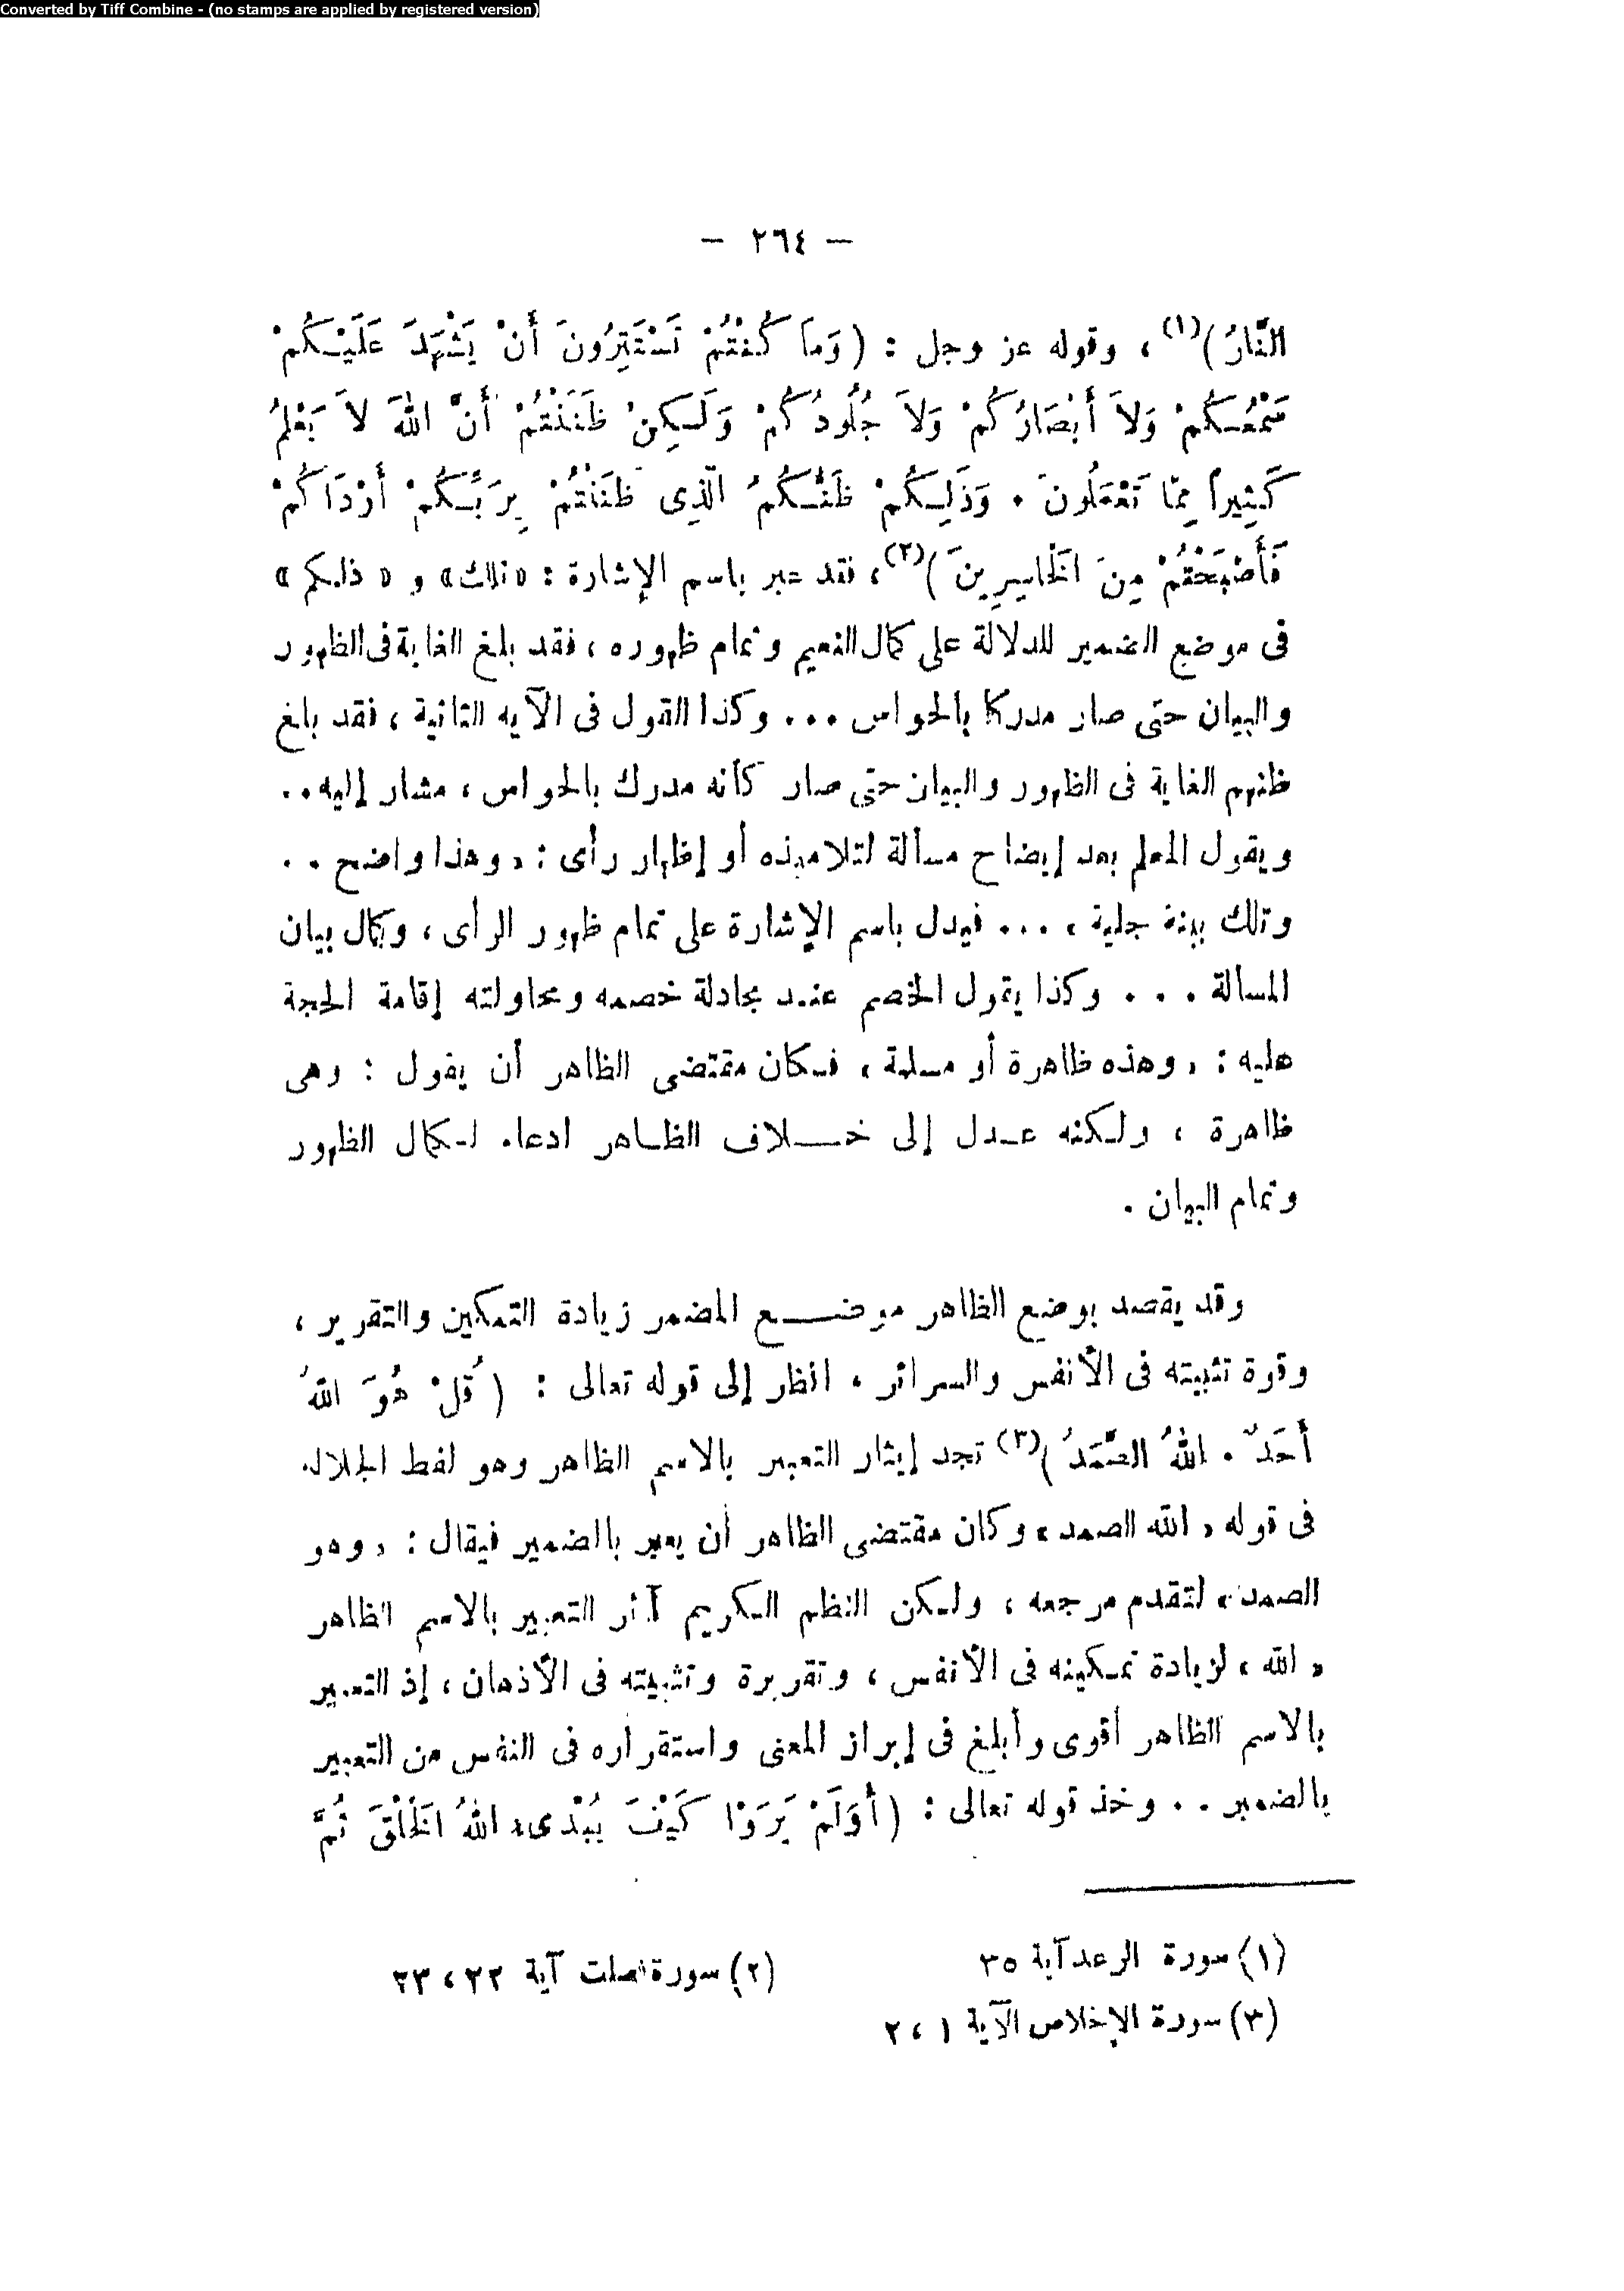 Converted by Tiff Combine - (no stamps are applied by registered version)
— ٢٦٤ —
النَّارُ )(١) ، وقوله عز وجل : ( وَمَا كُنْتُمْ تَسْتَتِرُونَ أَنْ يَشْهَدَ عَلَيْكُمْ
سَمْعُكُمْ وَلاَ أَبْصَارُكُمْ وَلاَ جُلُودُكُمْ وَلَكِنْ ظَنَنْتُمْ أَنَّ اللهَ لاَ يَعْلَمُ
كَثِيراً مِمَّا تَعْمَلُونَ . وَذَلِكُمْ ظَنُّكُمُ الَّذِى ظَنَنْتُمْ بِرَبِّكُمْ أَرْدَاكُمْ
فَأَصْبَحْتُمْ مِنَ الْخَاسِرِينَ )(٢) ، فقد عبر باسم الإشارة : « تلك » و « ذلكم »
فى موضع الضمير للدلالة على كمال النعيم وتمام ظهوره ، فقد بلغ الغاية فى الظهور
والبيان حتى صار مدركا بالحواس ... وكذا القول فى الآيه الثانية ، فقد بلغ
ظنهم الغاية فى الظهور والبيان حتى صار كأنه مدرك بالحواس ، مشار إليه ..
ويقول المعلم بعد إيضاح مسألة لتلاميذه أو إظهار رأى : « وهذا واضح ..
وتلك بينة جلية » ... فيدل باسم الإشارة على تمام ظهور الرأى ، وكمال بيان
المسألة ... وكذا يقول الخصم عند مجادلة خصمه ومحاولته إقامة الحجة
عليه : « وهذه ظاهرة أو مسلمة » فكان مقتضى الظاهر أن يقول : وهى
ظاهرة ، ولكنه عدل إلى خلاف الظاهر ادعاء لكمال الظهور
وتمام البيان .
وقد يقصد بوضع الظاهر موضع المضمر زيادة التمكين والتقرير ،
وقوة تثبيته فى الأنفس والسرائر ، انظر إلى قوله تعالى : ( قُلْ هُوَ اللهُ
أَحَدٌ . اللهُ الصَّمَدُ )(٣) تجد إيثار التعبير بالاسم الظاهر وهو لفظ الجلالة
فى قوله « الله الصمد » وكان مقتضى الظاهر أن يعبر بالضمير فيقال : « وهو
الصمد » لتقدم مرجعه ، ولكن النظم الكريم آثر التعبير بالاسم الظاهر
« الله » لزيادة تمكينه فى الأنفس ، وتقريرة وتثبيته فى الأذهان ، إذ التعبير
بالاسم الظاهر أقوى وأبلغ فى إبراز المعنى واستقراره فى النفس من التعبير
بالضمير .. وخذ قوله تعالى : ( أَوَلَمْ يَرَوْا كَيْفَ يُبْدِىءُ اللهُ الْخَلْقَ ثُمَّ
(١) سورة الرعد آية ٣٥ (٢) سورة فصلت آية ٢٢ ، ٢٣
(٣) سورة الإخلاص الآية ١ ، ٢